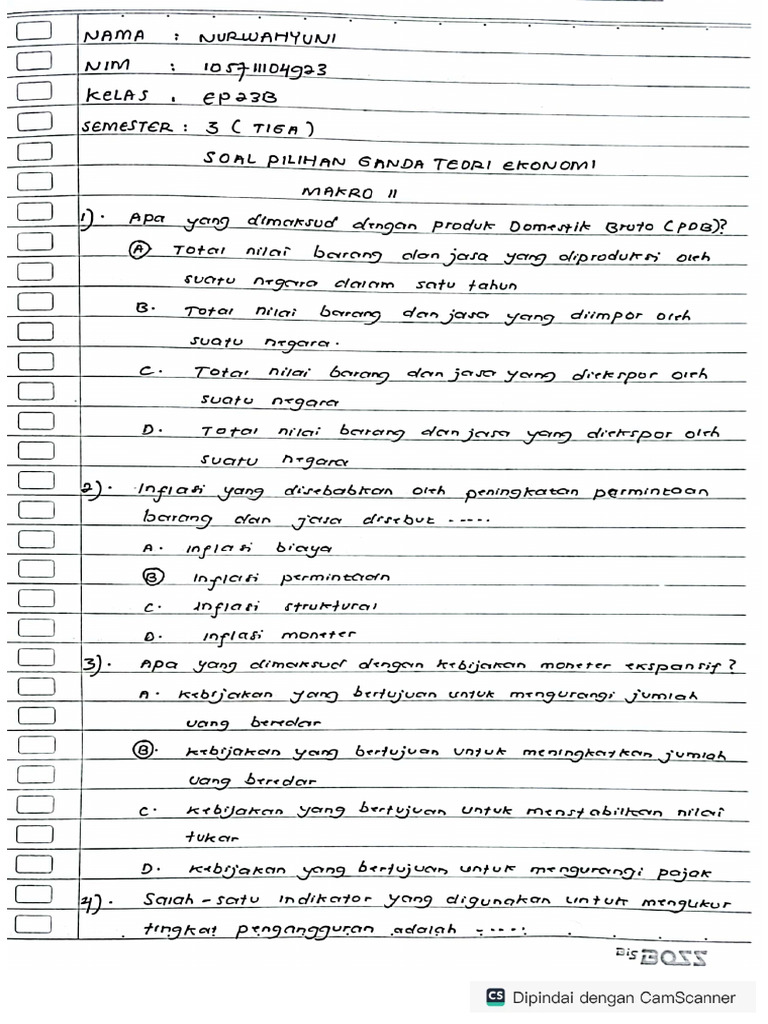 NAMA : NURWAHYUNI
NIM : 105711104923
KELAS : EP23B
SEMESTER : 3 (TIGA)
SOAL PILIHAN GANDA TEORI EKONOMI
MAKRO II
1). Apa yang dimaksud dengan produk Domestik Bruto (PDB)?
A Total nilai barang dan jasa yang diproduksi oleh
suatu negara dalam satu tahun
B. Total nilai barang dan jasa yang diimpor oleh
suatu negara.
C. Total nilai barang dan jasa yang diekspor oleh
suatu negara
D. Total nilai barang dan jasa yang diekspor oleh
suatu negara
2). Inflasi yang disebabkan oleh peningkatan permintaan
barang dan jasa disebut .....
A. inflasi biaya
B Inflasi permintaan
C. Inflasi struktural
D. inflasi moneter
3). Apa yang dimaksud dengan kebijakan moneter ekspansif?
A. kebijakan yang bertujuan untuk mengurangi jumlah
uang beredar
B. kebijakan yang bertujuan untuk meningkatkan jumlah
uang beredar
C. kebijakan yang bertujuan untuk menstabilkan nilai
tukar
D. kebijakan yang bertujuan untuk mengurangi pajak
4). Salah-satu indikator yang digunakan untuk mengukur
tingkat pengangguran adalah .....
Bis BOSS
CS Dipindai dengan CamScanner